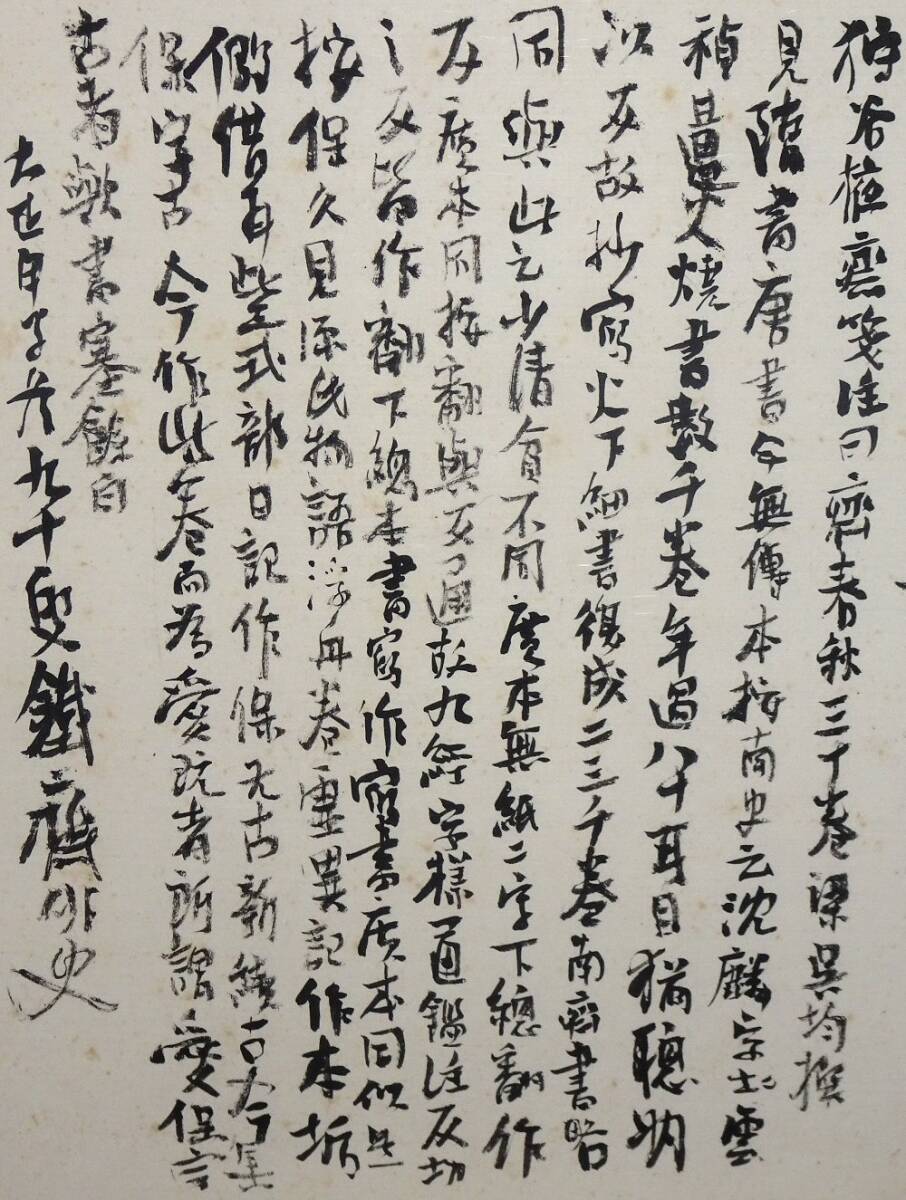 狩谷棭齋箋注曰齊春秋三十卷梁吳均撰
見隋書唐書今無傳本按南史云沈麟字雲
禎 火燒書數千卷年過八十耳目猶聰明
以反故抄寫火下細書復成二三千卷南齊書略
同與此云少清貧不同廣本無紙二字下總翻作
反廣本同按翻與反通故九經字樣通鑑注反切
之反皆作翻下總本書寫作寫書廣本同似是
按保久見源氏物語浮舟卷靈異記作本
借耳紫式部日記作保无古新續古今集
保宇古今作此卷而為愛玩者所謂愛保言
古者歟書塞餘白
大正甲子春九十叟鐵齋外史